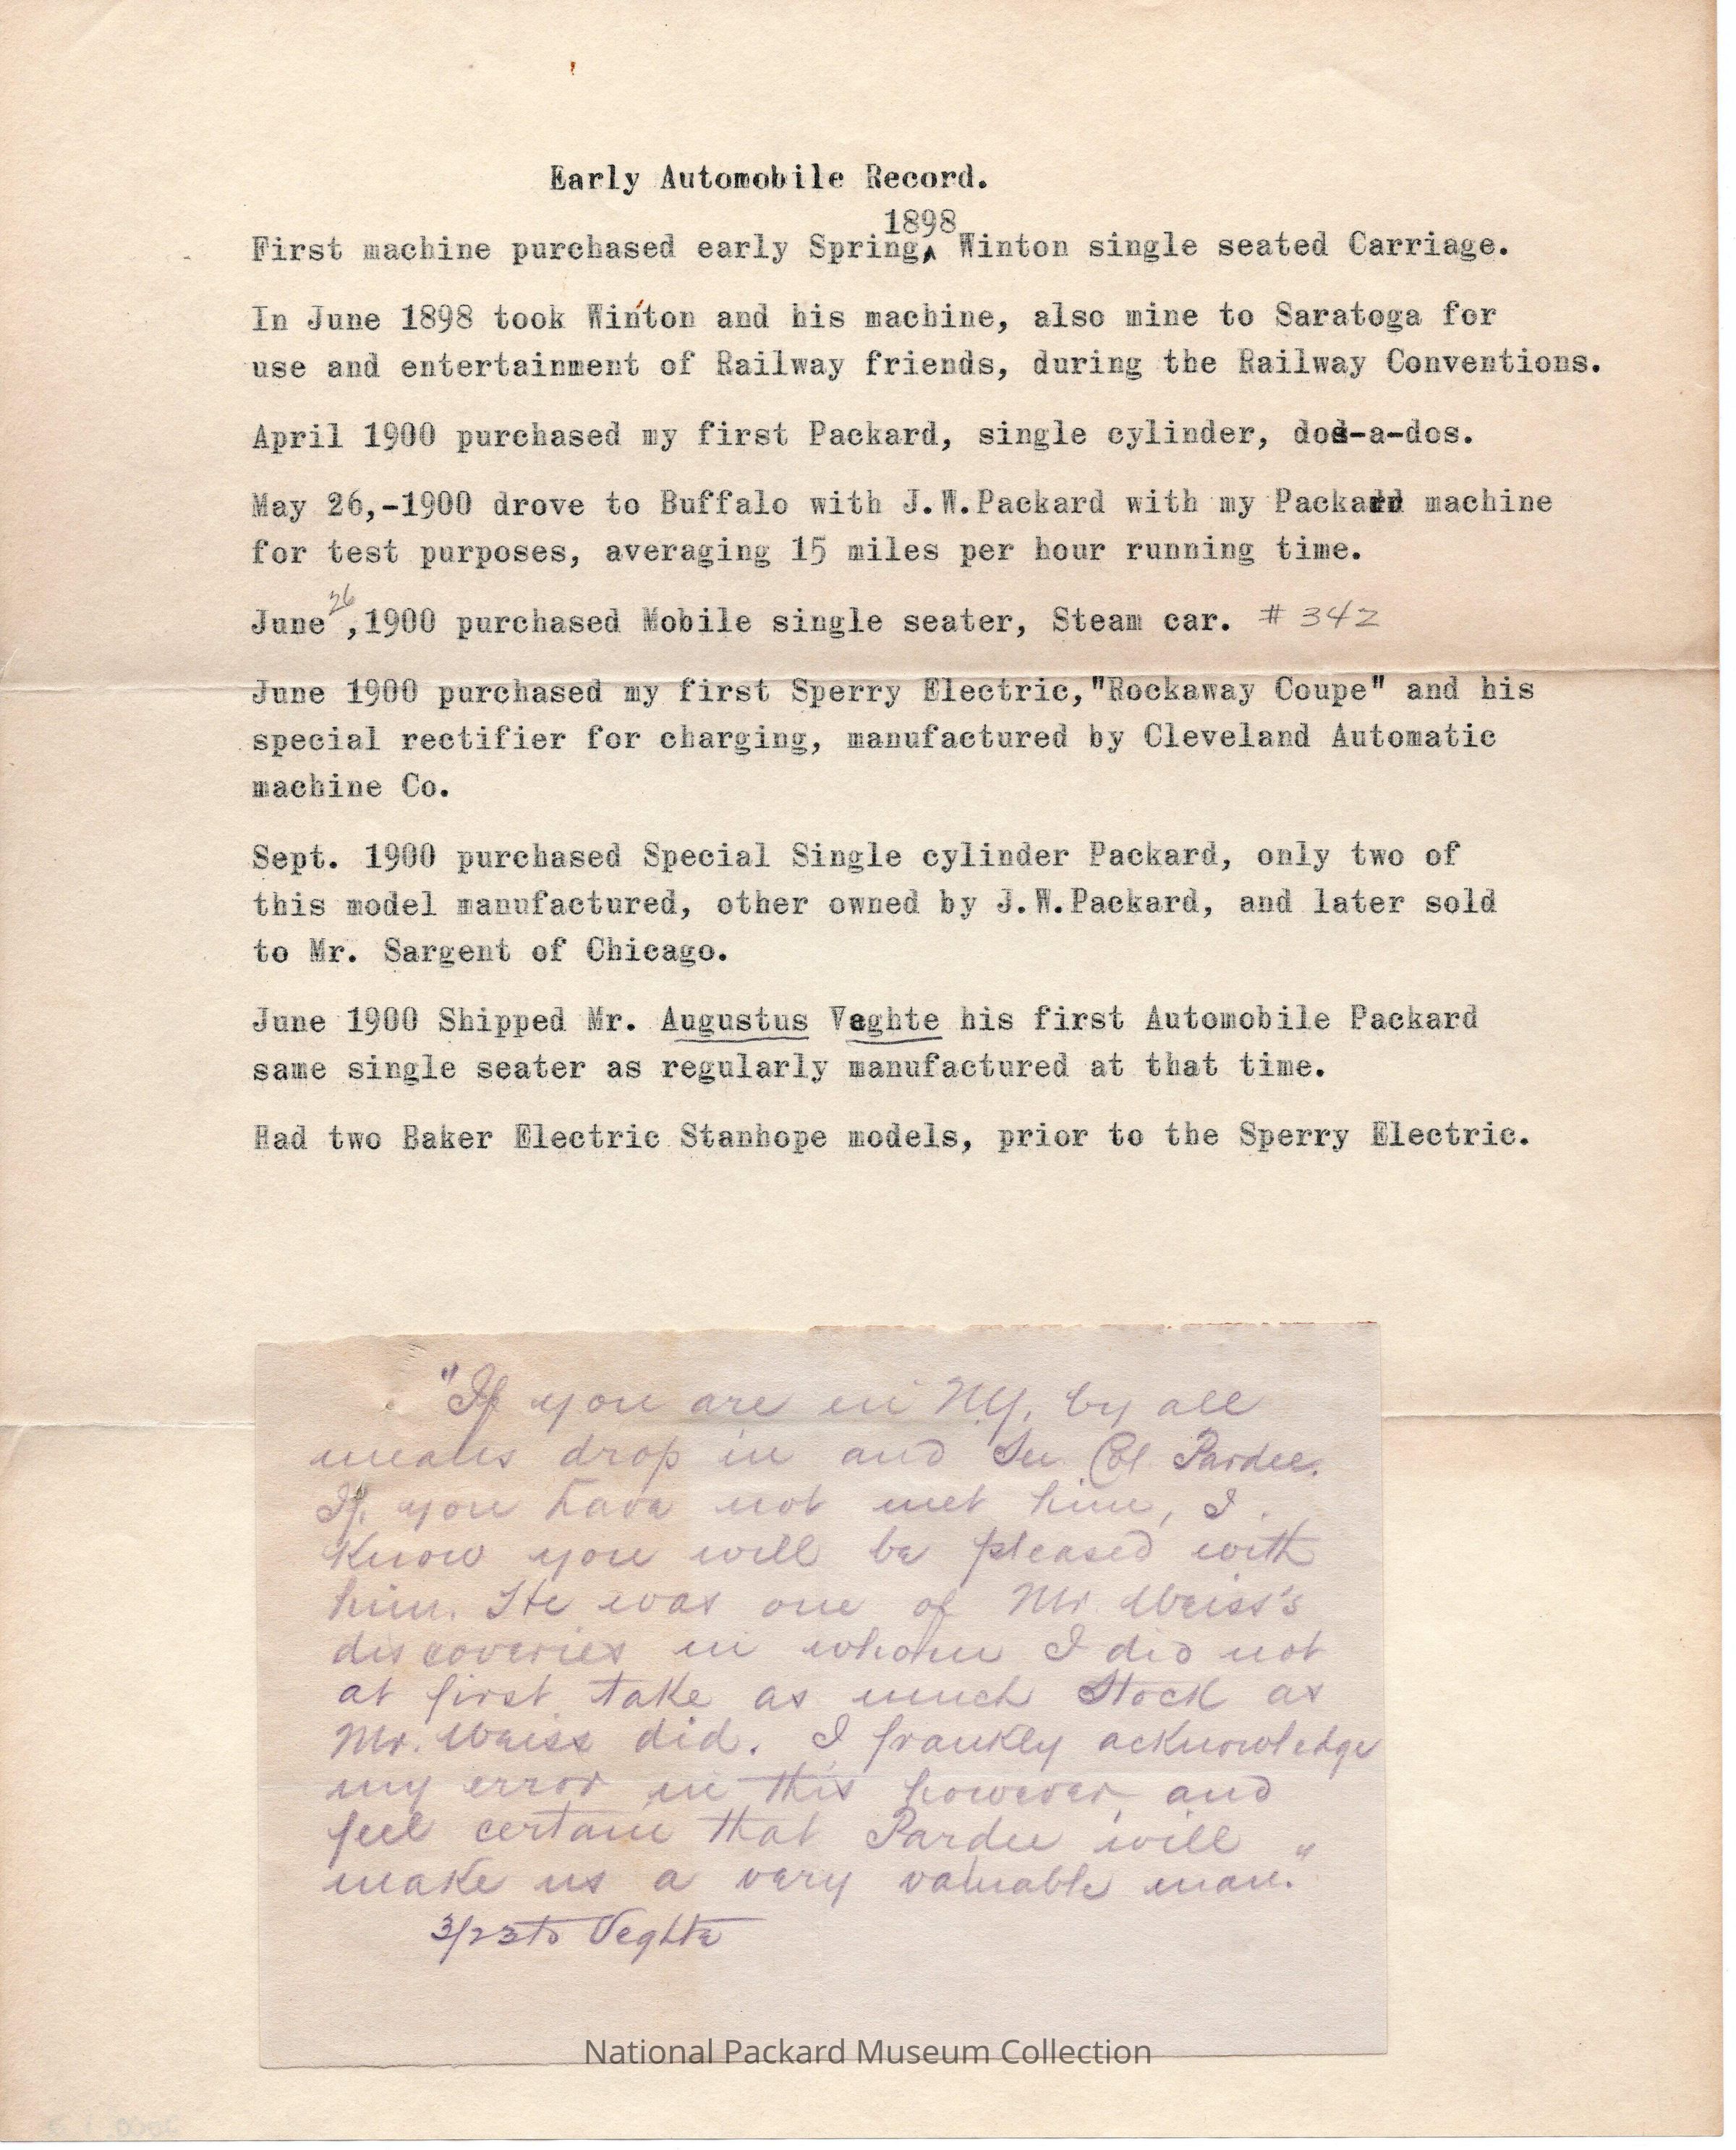 Early Automobile Record.
1898
First machine purchased early Spring,^ Winton single seated Carriage.
In June 1898 took Winton and his machine, also mine to Saratoga for
use and entertainment of Railway friends, during the Railway Conventions.
April 1900 purchased my first Packard, single cylinder, dos-a-dos.
May 26,-1900 drove to Buffalo with J.W.Packard with my Packard machine
for test purposes, averaging 15 miles per hour running time.
26
June ,1900 purchased Mobile single seater, Steam car. # 342
June 1900 purchased my first Sperry Electric,"Rockaway Coupe" and his
special rectifier for charging, manufactured by Cleveland Automatic
machine Co.
Sept. 1900 purchased Special Single cylinder Packard, only two of
this model manufactured, other owned by J.W.Packard, and later sold
to Mr. Sargent of Chicago.
June 1900 Shipped Mr. Augustus Veghte his first Automobile Packard
same single seater as regularly manufactured at that time.
Had two Baker Electric Stanhope models, prior to the Sperry Electric.
"If you are in N.Y. by all
means drop in and See Col. Pardee.
If you have not met him, I
Know you will be pleased with
him. He was one of Mr Weiss's
discoveries in whom I did not
at first take as much Stock as
Mr. Weiss did. I frankly acknowledge
my error in this however, and
feel certain that Pardee will
make us a very valuable man."
3/23 to Veghte
National Packard Museum Collection